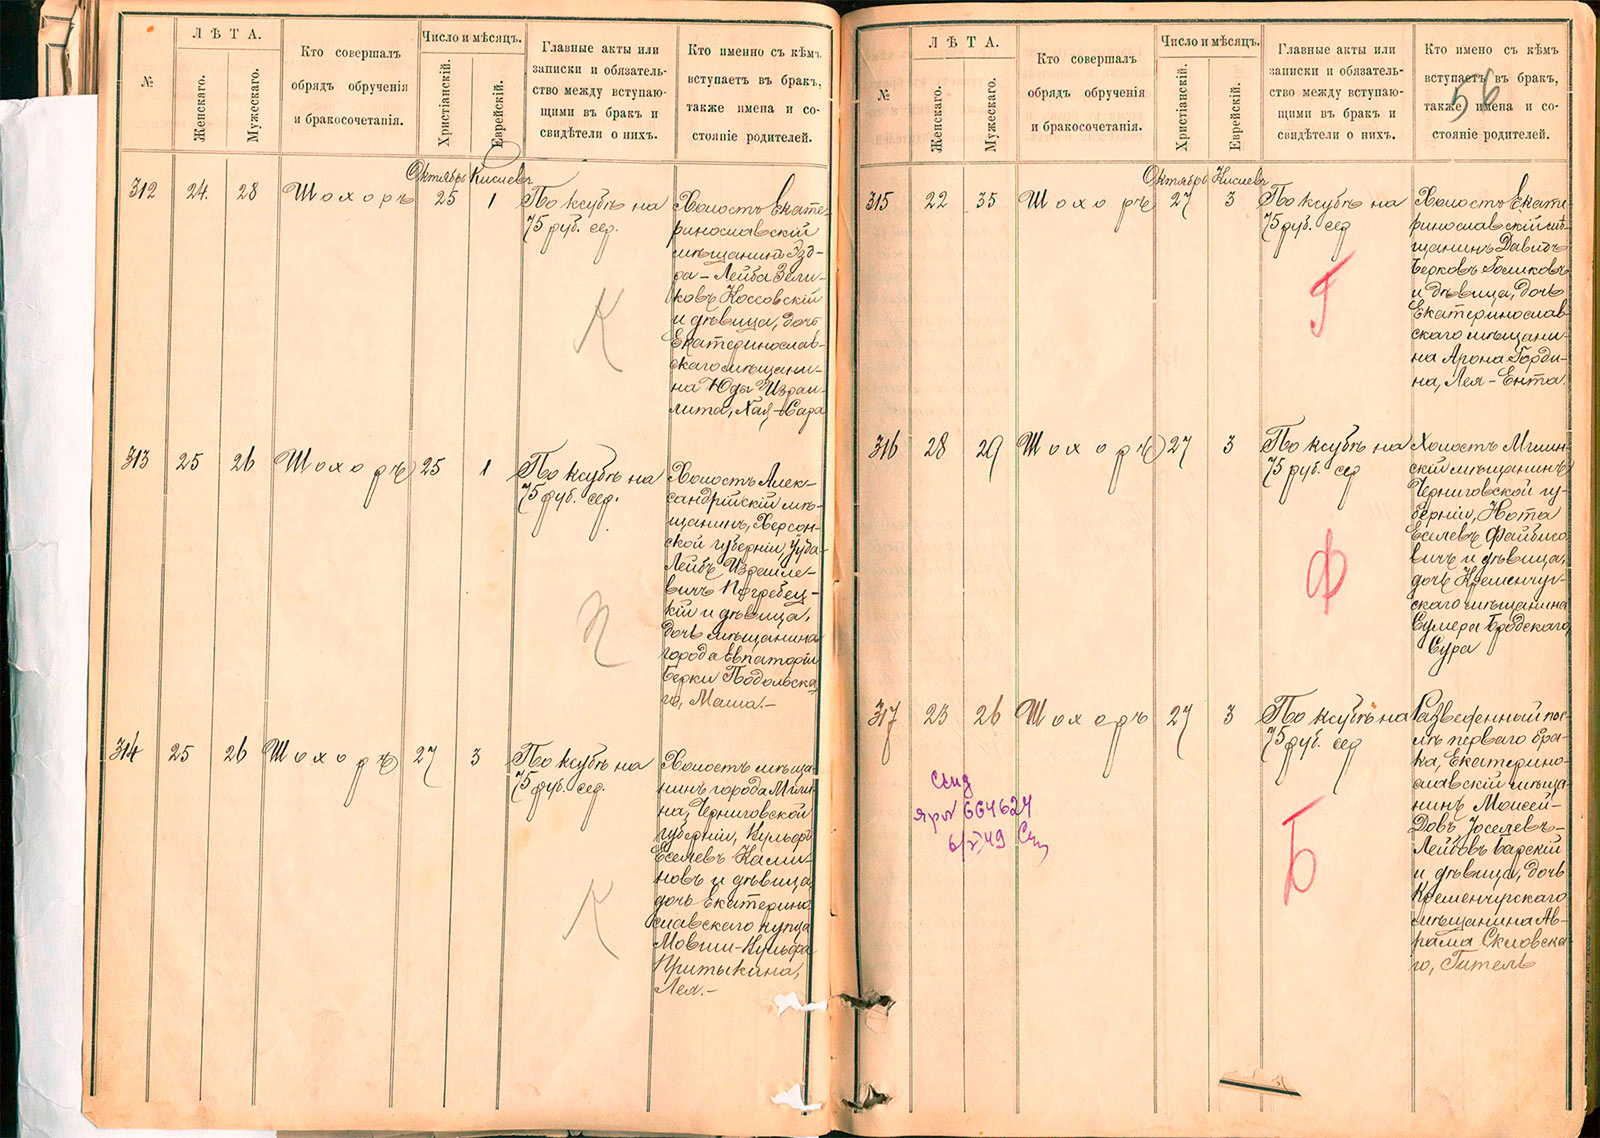 №
ЛѢТА.
Женскаго.
Мужескаго.
Кто совершалъ
обрядъ обрученія
и бракосочетанія.
Число и мѣсяцъ.
Христіанскій.
Еврейскій.
Главные акты или
записки и обязатель-
ство между вступаю-
щими въ бракъ и
свидѣтели о нихъ.
Кто именно съ кѣмъ
вступаетъ въ бракъ,
также имена и со-
стояніе родителей.
Октябрь Кислевъ
312 24. 28 Шохоръ 25 1
По ксубѣ на
75 руб. сер.
Холостъ Екате-
ринославскій
мѣщанинъ Эзд-
ра-Лейба Зели-
ковъ Коссовскій
и дѣвица, дочь
Екатеринослав-
скаго мѣщани-
на Юды Израи-
лита, Хая-Сара
К
313 25 26 Шохоръ 25 1
По ксубѣ на
75 руб. сер.
Холостъ Алек-
сандрійскій мѣ-
щанинъ, Херсон-
ской губерніи,
Лейбъ Израиле-
вичъ Погребец-
кій и дѣвица,
дочь мѣщанина
города Евпаторіи
Берки Подольска-
го, Маша.-
П
314 25 26 Шохоръ 27 3
По ксубѣ на
75 руб. сер.
Холостъ мѣща-
нинъ города Мгли-
на, Черниговской
губерніи,
Еселевъ Калми-
новъ и дѣвица,
дочь Екатерино-
славскаго купца
Мовши-
Притыкина,
Лея.-
К
№
ЛѢТА.
Женскаго.
Мужескаго.
Кто совершалъ
обрядъ обрученія
и бракосочетанія.
Число и мѣсяцъ.
Христіанскій.
Еврейскій.
Главные акты или
записки и обязатель-
ство между вступаю-
щими въ бракъ и
свидѣтели о нихъ.
Кто имено съ кѣмъ
вступаетъ въ бракъ,
также имена и со-
стояніе родителей.
56
Октябрь Кислевъ
315 22 35 Шохоръ 27 3
По ксубѣ на
75 руб. сер
Холостъ Екате-
ринославскій мѣ-
щанинъ Давидъ
Берковъ Голиковъ
и дѣвица, дочь
Екатеринослав-
скаго мѣщани-
на Арона Горди-
на, Лея-Ента.
Г
316 28 29 Шохоръ 27 3
По ксубѣ на
75 руб. сер
Холостъ Мглин-
скій мѣщанинъ
Черниговской гу-
берніи, Нота
Еселевъ Файбисо-
вичъ и дѣвица,
дочь Кременчуг-
скаго мѣщанина
Сумера Бродскаго,
Сура
Ф
317 23 26 Шохоръ 27 3
По ксубѣ на
75 руб. сер
Разведенный пос-
лѣ перваго бра-
ка, Екатерино-
славскій мѣща-
нинъ Моисей-
Довъ Іоселевъ-
Лейбовъ Барскій
и дѣвица, дочь
Кременчугскаго
мѣщанина Ав-
рама Скловска-
го, Гитель
Б
664624